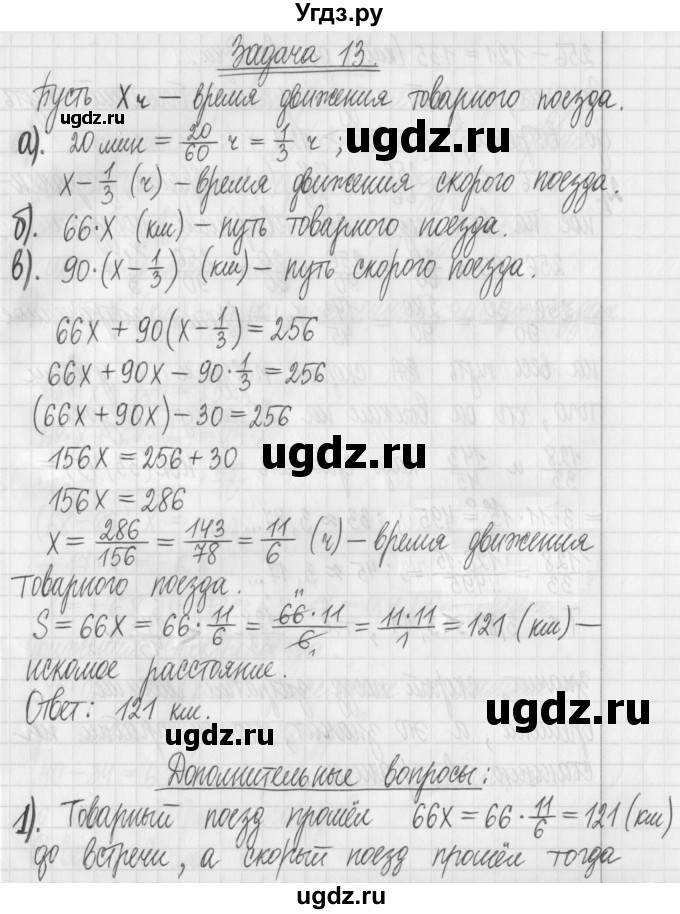 Угдз.ру
Задача 13.
Пусть х ч – время движения товарного поезда.
ugdz.ru
а). 20 мин = 20/60 ч = 1/3 ч ;
ugdz.ru
х – 1/3 (ч) – время движения скорого поезда.
б). 66·х (км) – путь товарного поезда.
в). 90·(х – 1/3) (км) – путь скорого поезда.
66х + 90(х – 1/3) = 256
66х + 90х – 90·1/3 = 256
(66х + 90х) – 30 = 256
ugdz.ru
156х = 256 + 30
156х = 286
х = 286/156 = 143/78 = 11/6 (ч) – время движения
товарного поезда.
ugdz.ru
S = 66х = 66·11/6 = 66·11/6 = 11·11/1 = 121 (км) –
искомое расстояние.
Ответ: 121 км.
ugdz.ru
ugdz.ru
Дополнительные вопросы:
1). Товарный поезд прошёл 66х = 66·11/6 = 121 (км)
до встречи, а скорый поезд прошёл тогда
ugdz.ru